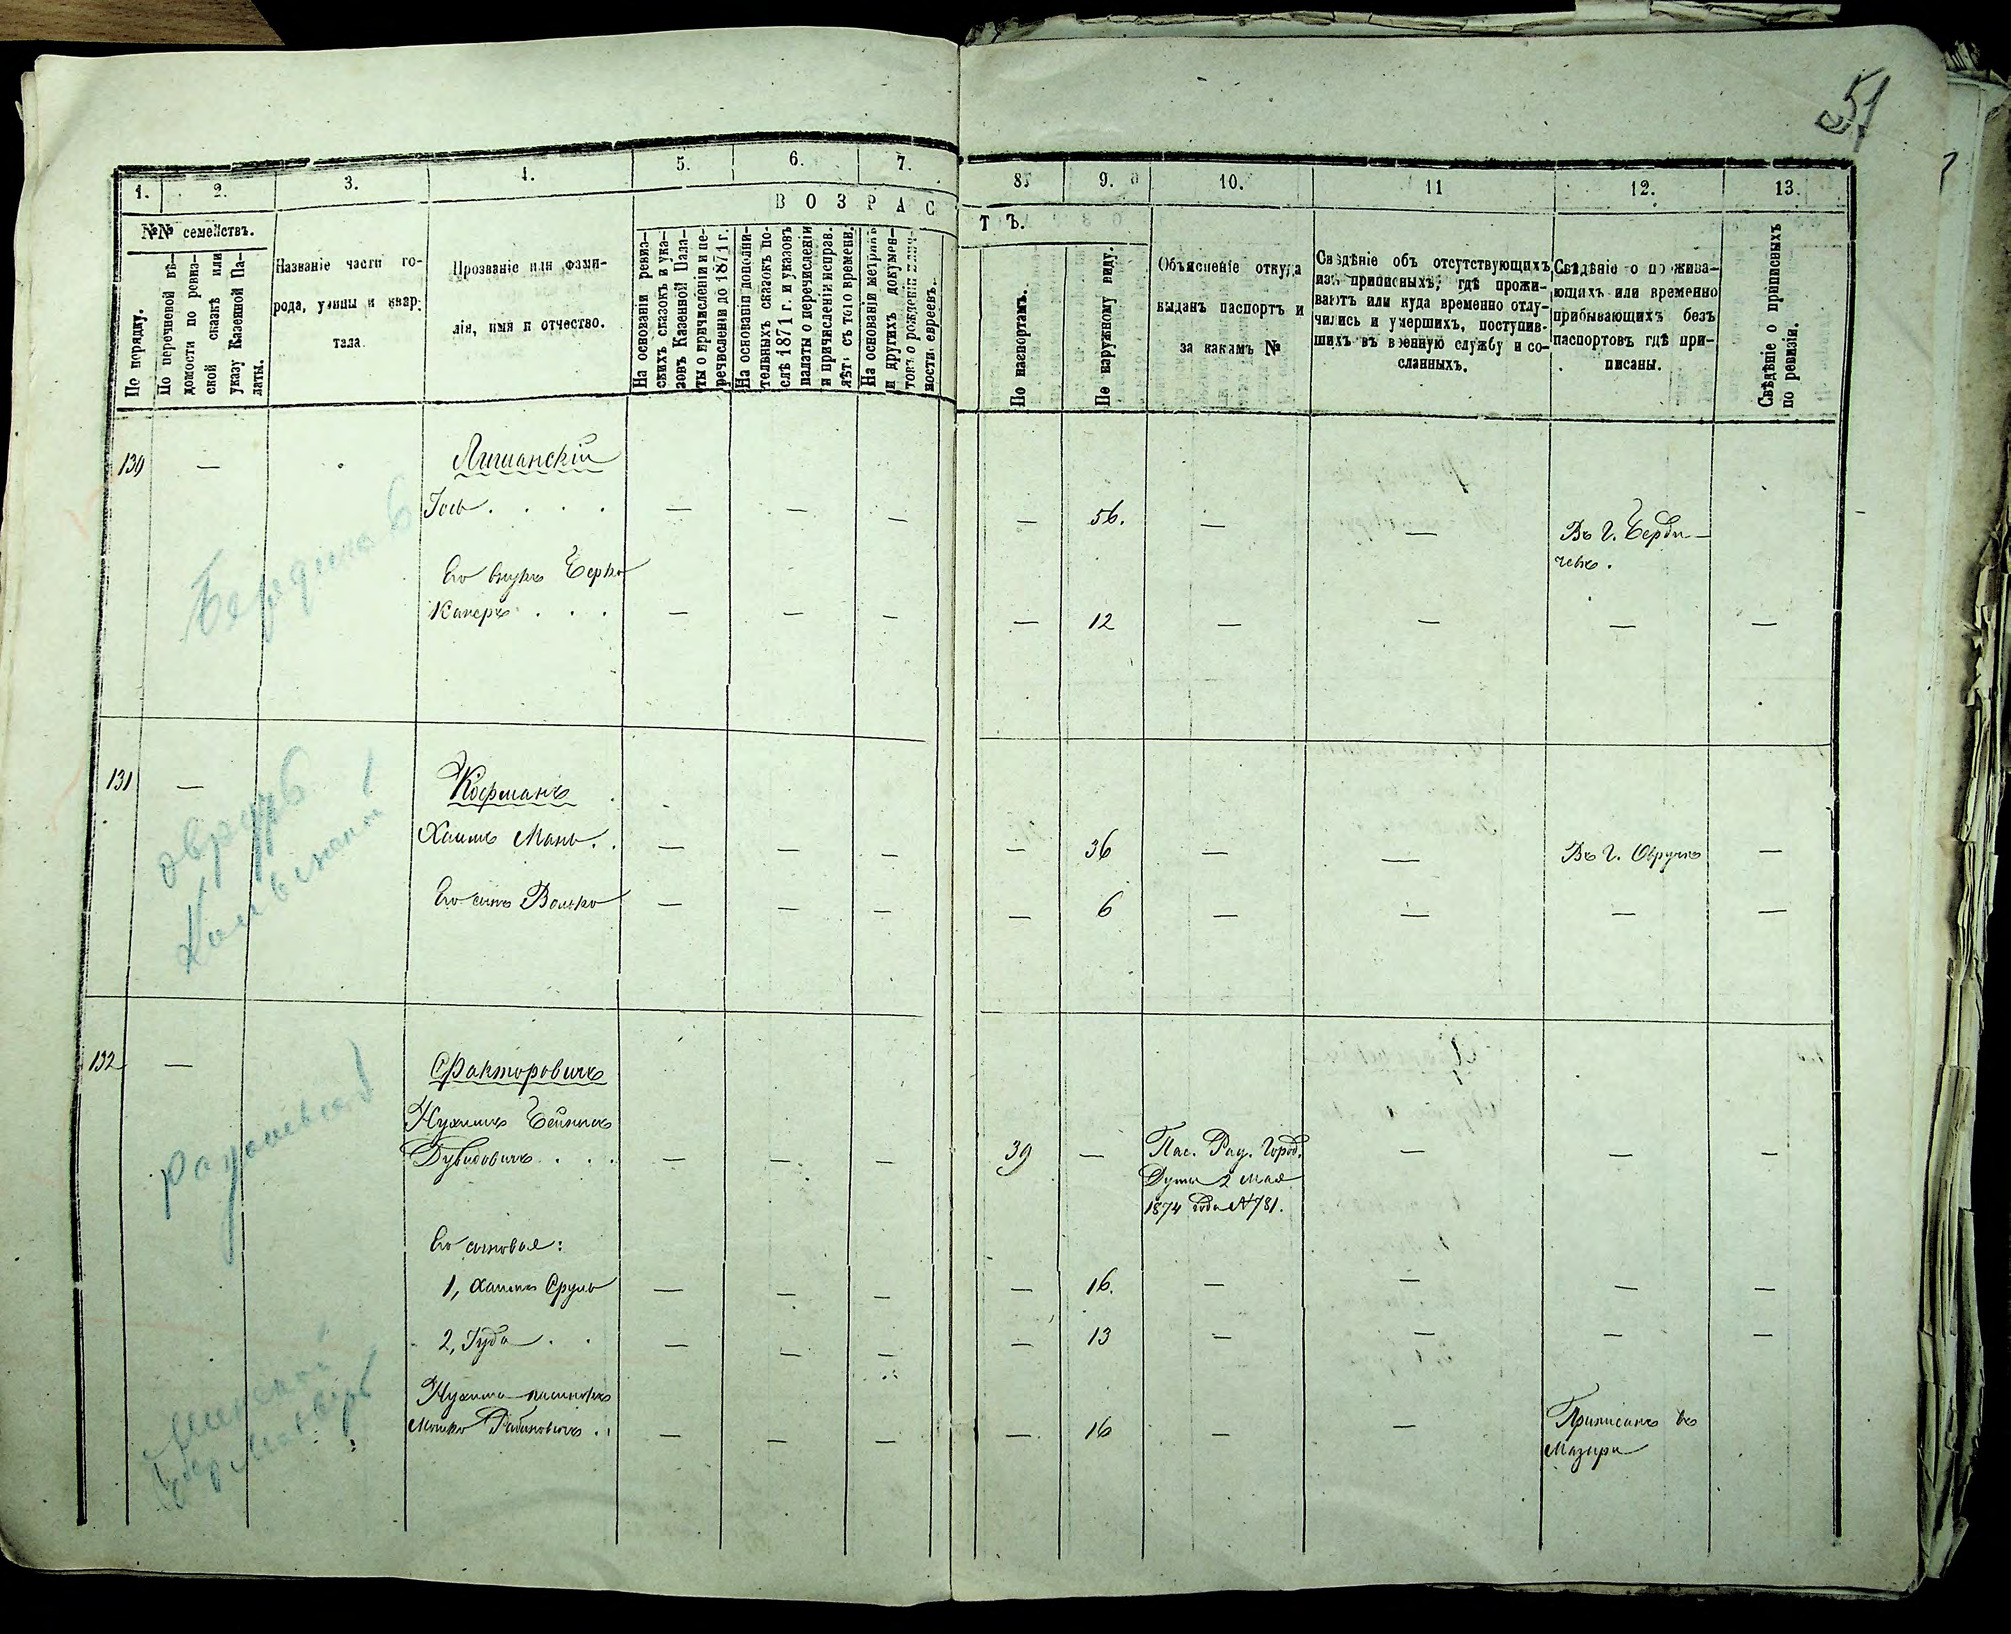 51
1. 2. 3. 4. 5. 6. 7. 8. 9. 10. 11 12. 13.
№№ семействъ.
По порядку.
По перечневой вѣ-
домости по ревиз-
ской сказкѣ или
указу Казенной Па-
латы.
Названіе части го-
рода, улицы и квар-
тала.
Прозваніе или фами-
лія, имя и отчество.
ВОЗРАСТЪ.
На основаніи ревиз-
скихъ сказокъ и ука-
зовъ Казенной Пала-
ты о причисленіи и пе-
речисленіи до 1871 г.
На основаніи дополни-
тельныхъ сказокъ по-
слѣ 1871 г. и указовъ
палаты о перечисленіи
и причисленіи исправ.
лѣтъ съ того времени.
На основаніи метрикъ
и другихъ докумен-
товъ о рожденіи
ности евреевъ.
По паспортамъ.
По наружному виду.
Объясненіе откуда
выданъ паспортъ и
за какимъ №
Свѣдѣніе объ отсутствующихъ
изъ приписныхъ, гдѣ прожи-
ваютъ или куда временно отлу-
чились и умершихъ, поступив-
шихъ въ военную службу и со-
сланныхъ.
Свѣдѣніе о прожива-
ющихъ или временно
прибывающихъ безъ
паспортовъ гдѣ при-
писаны.
Свѣдѣніе о приписныхъ
по ревизіи.
130 — Лишанскій
Іось . . . . — — — — 56. — — Въ г. Берди-
чевѣ.
Его внукъ Берко
Канеръ . . . — — — — 12 — — — —
131 — Кофманъ
Хаимъ Мань . . — — — — 36 — — Въ г. Овручѣ —
Его сынъ Волько — — — — 6 — — — —
132 — Факторовичъ
Нухимъ Бейнишъ
Дувидовичъ . . . — — — 39 — Пас. Рад. Город. — — —
Думы 2 мая
1874 года №781.
Его сыновья:
1, Хаимъ Сруль — — — — 16. — — — —
2, Іуда . . — — — — 13 — — — —
Нухима пасынокъ
Мошко Рабиновичъ . . — — — — 16 — — Приписанъ въ
Мазыри